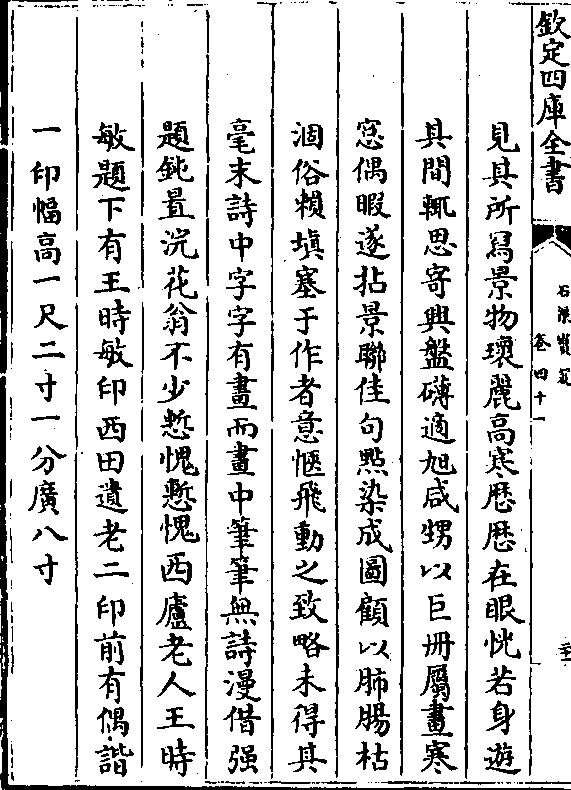 欽定四庫全書
石渠寶笈
卷四十一
見其所寫景物瓌麗高寒歴歴在眼恍若身遊
其間輒思寄興盤礴適旭咸甥以巨冊屬畫寒
窓偶暇遂拈景聯佳句㸃染成圖顧以肺腸枯
涸俗賴塡塞于作者意愜飛動之致略未得其
毫末詩中字字有畫而畫中筆筆無詩漫借强
題鈍置浣花翁不少慙愧慙愧西廬老人王時
敏題下有王時敏印西田遺老二印前有偶諧
一印幅高一尺二寸一分廣八寸